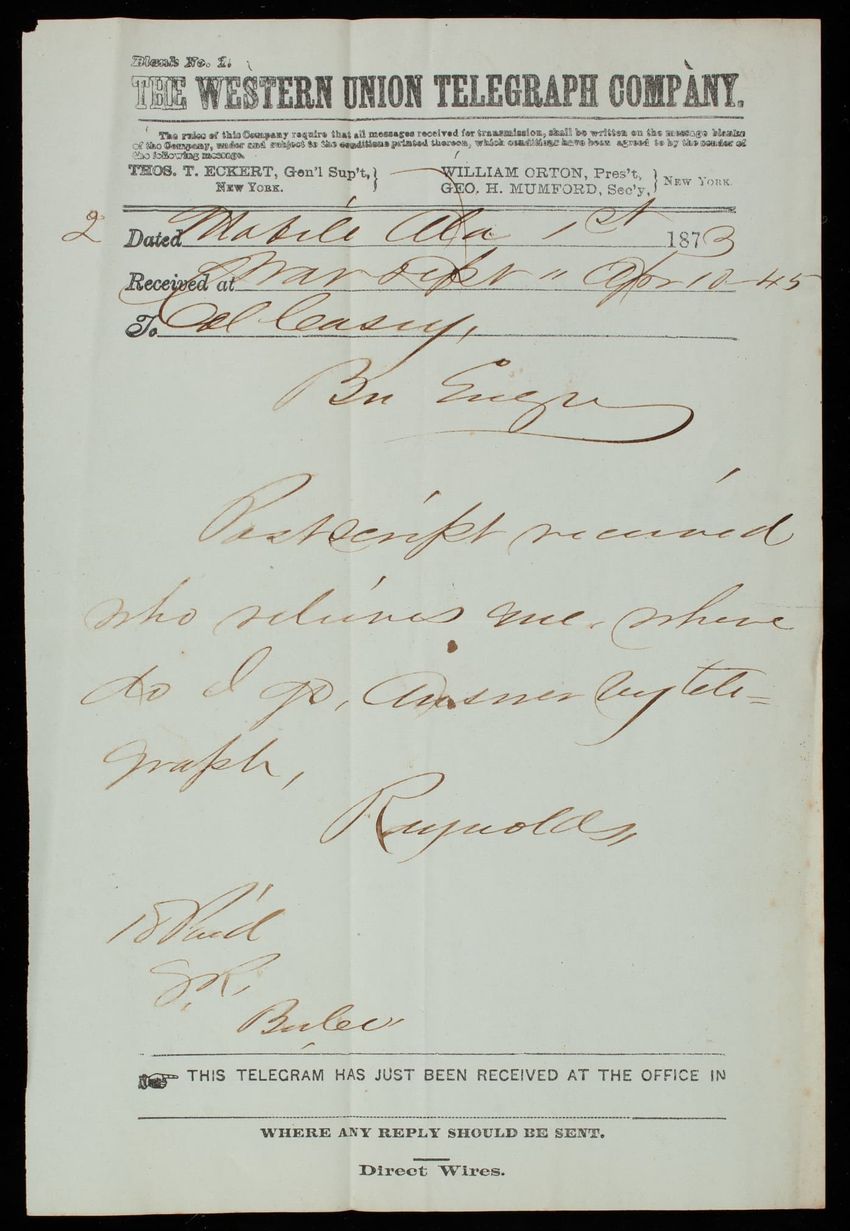 Blank No. 1.
THE WESTERN UNION TELEGRAPH COMPANY.
The rules of this Company require that all messages received for transmission, shall be written on the message blanks
of the Company, under and subject to the conditions printed thereon, which conditions have been agreed to by the sender of
the following message.
THOS. T. ECKERT, Gen'l Sup't,
NEW YORK.
WILLIAM ORTON, Pres't,
GEO. H. MUMFORD, Sec'y,
NEW YORK.
2 Dated Mobile Ala 1st 1873
Received at War Dept " Apr 10-45
To Col Casey,
Postscript received
who relieves me. where
do I go, Answer by tele=
graph,
Reynolds,,
18 Paid
THIS TELEGRAM HAS JUST BEEN RECEIVED AT THE OFFICE IN
WHERE ANY REPLY SHOULD BE SENT.
Direct Wires.